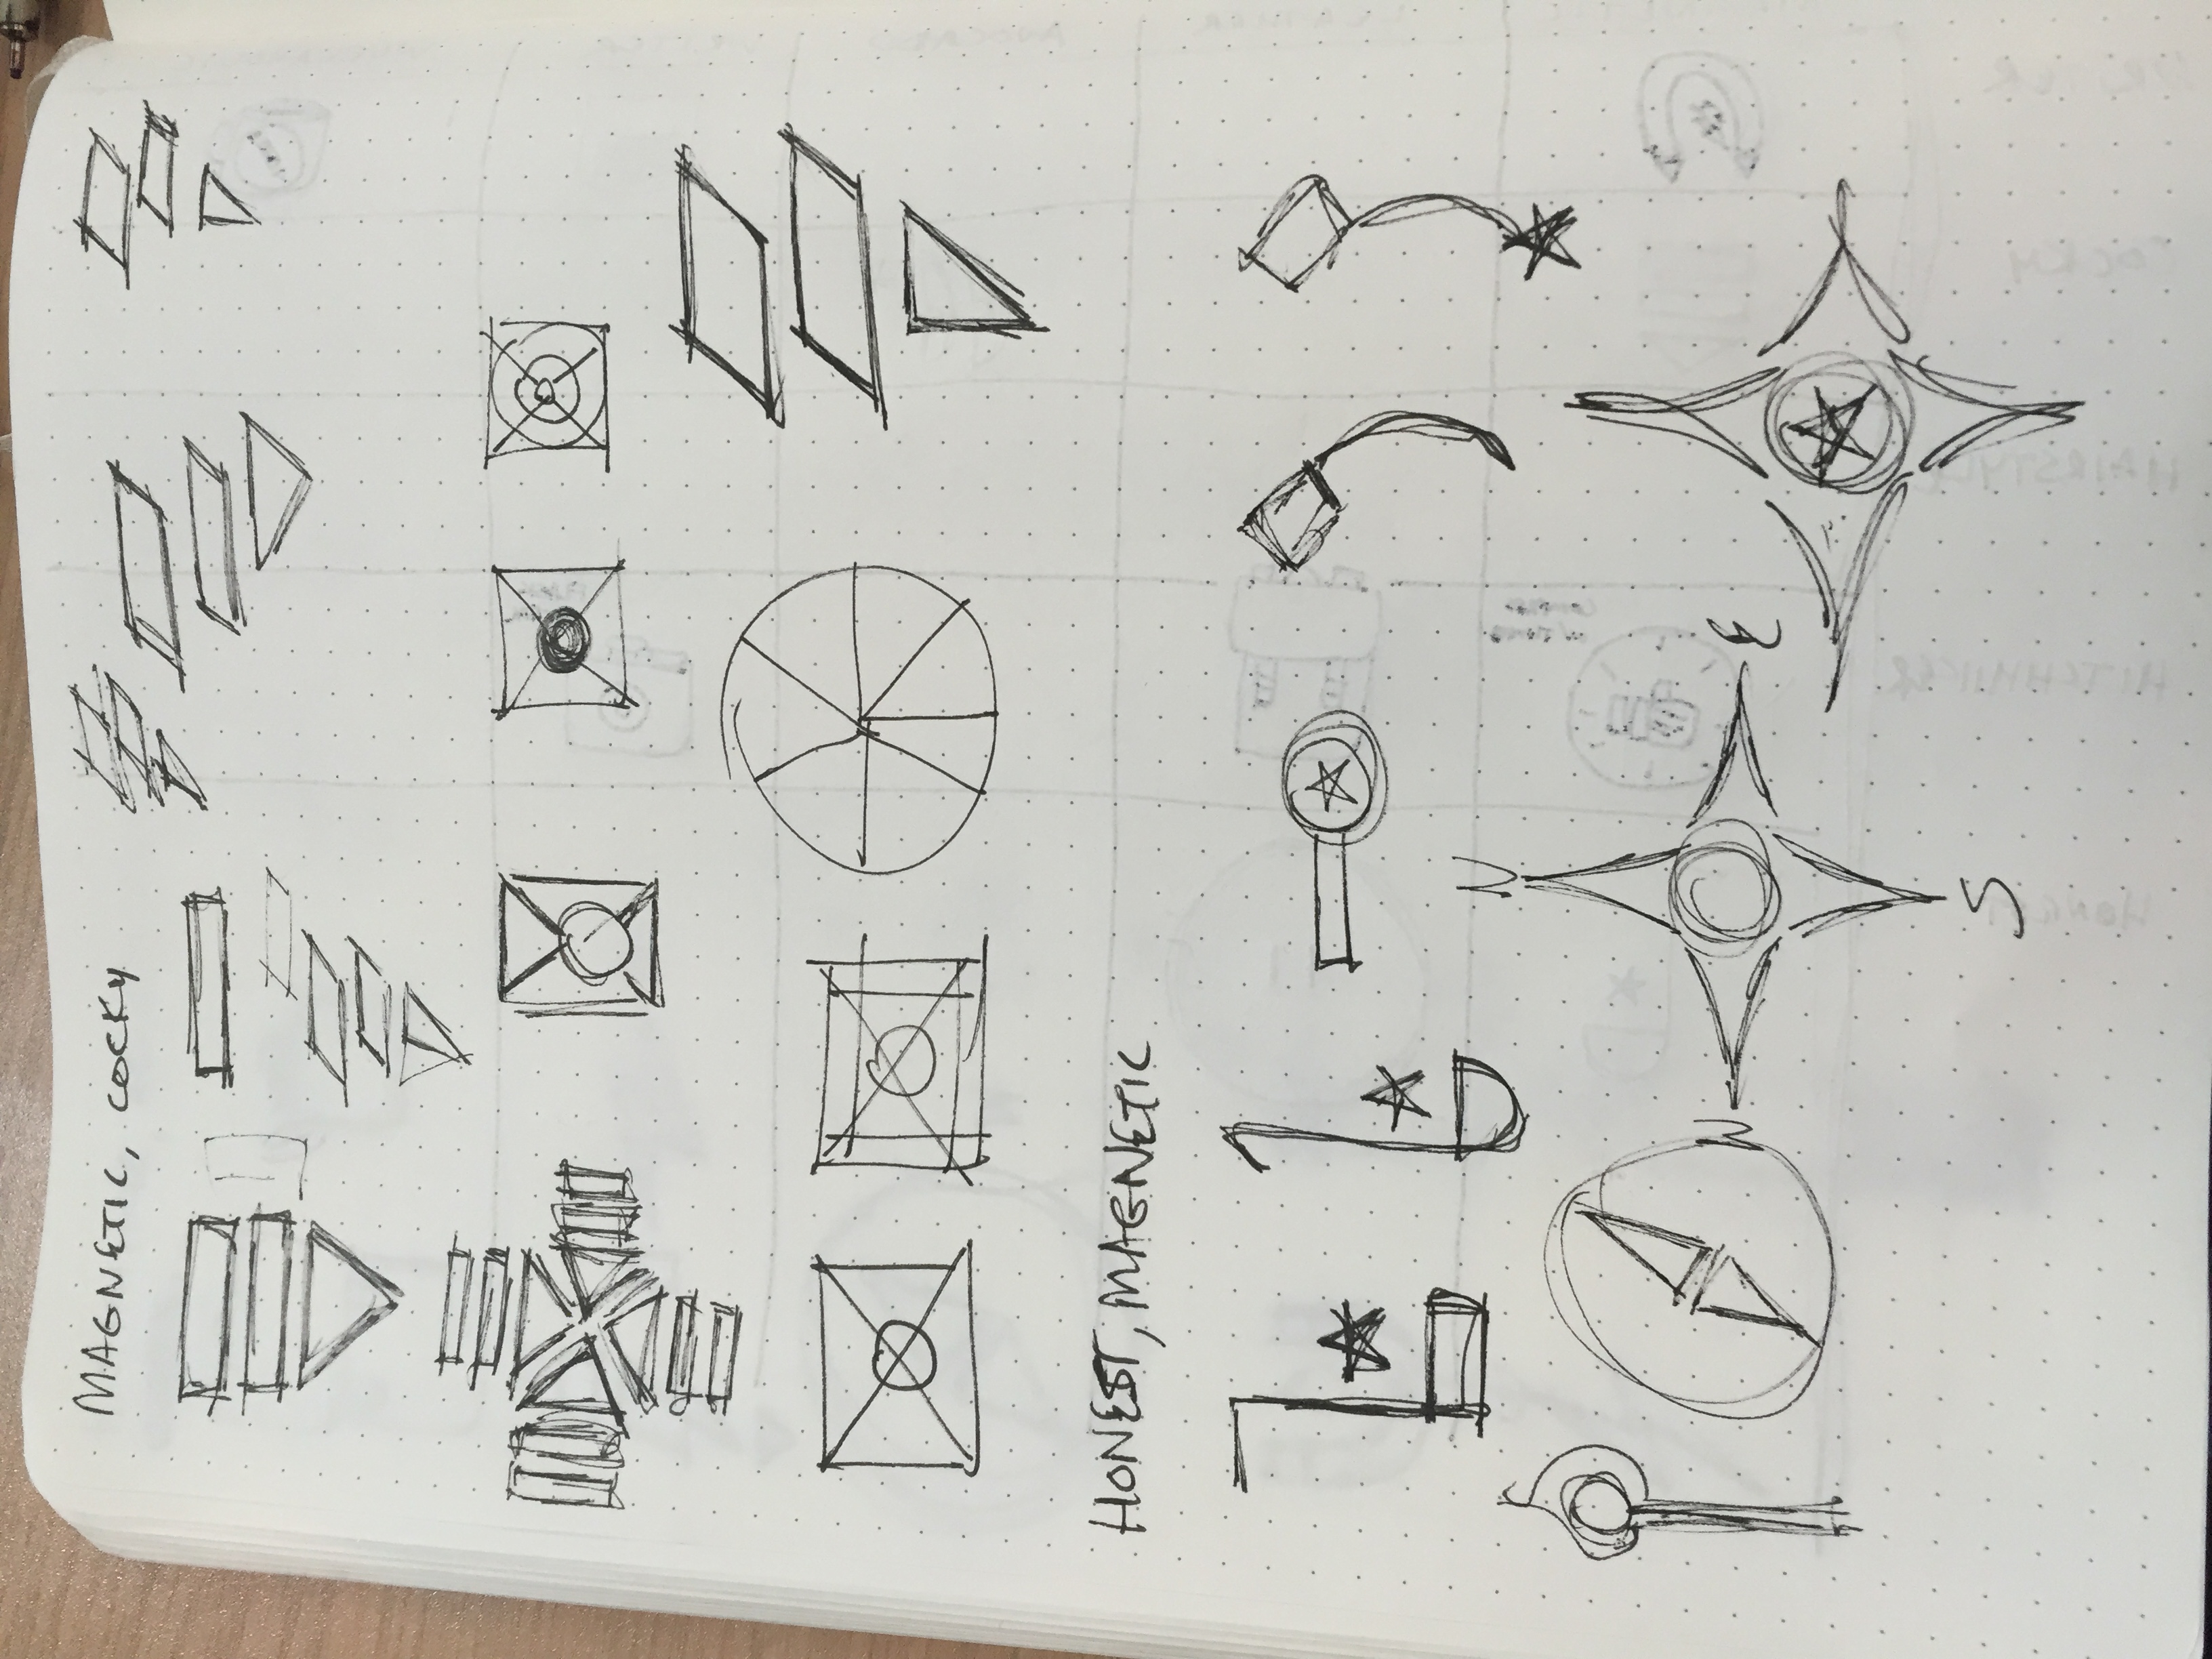 MAGNETIC, COCKY
HONEST, MAGNETIC
N
W
E
S